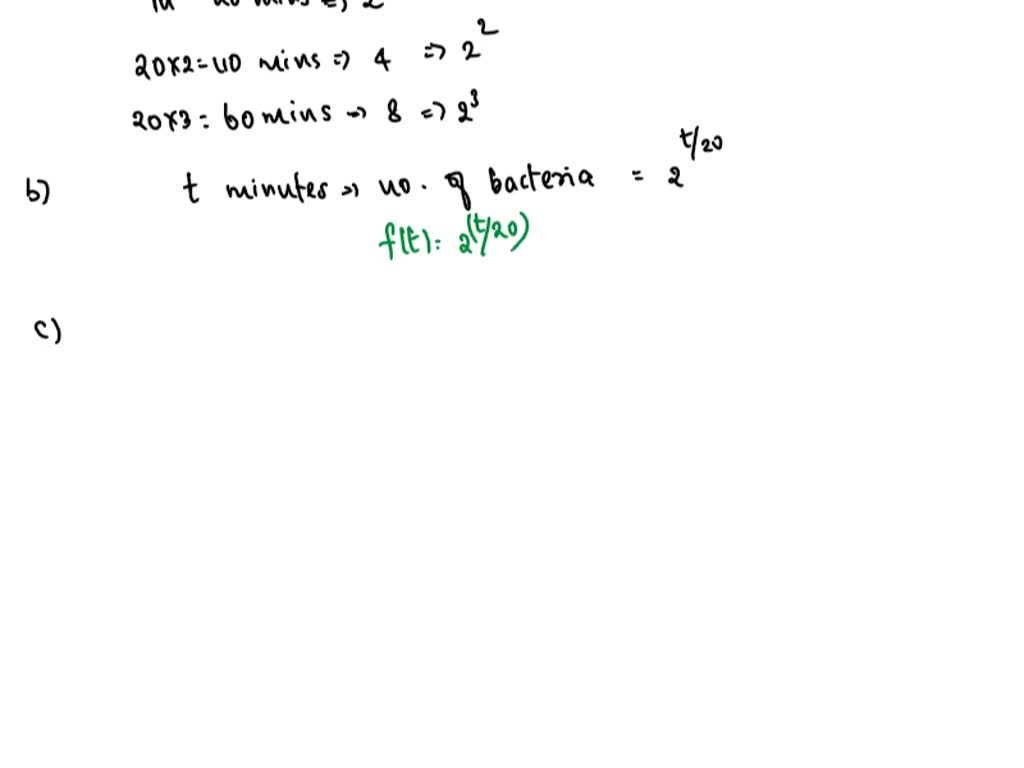 20 mins => 2
20x2=40 mins => 4 => 2^2
20x3 = 60 mins => 8 => 2^3
b) t minutes => no. of bacteria = 2^t/20
f(t) = 2^(t/20)
c)